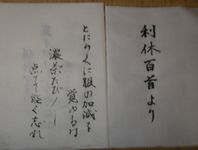 利休百首より
とにかくに服の加減を
覚ゆるは
濃茶たび〳〵
点てゝ能く志れ